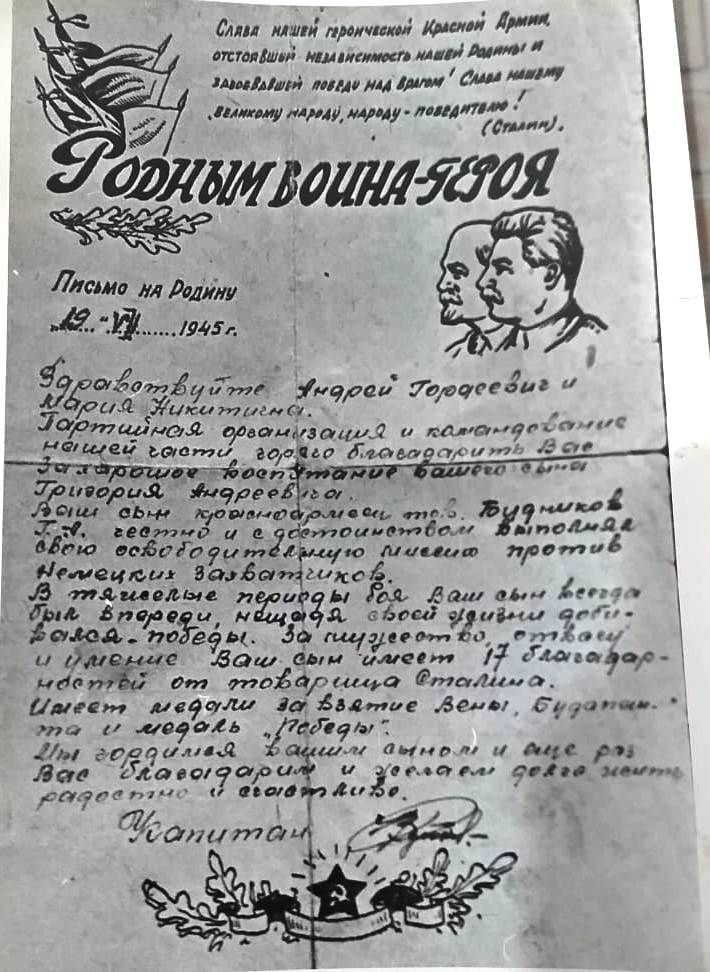 Слава нашей героической Красной Армии,
отстоявшей независимость нашей Родины и
завоевавшей победу над врагом! Слава нашему
великому народу, народу-победителю!
(Сталин).
Родным воина-героя
Письмо на Родину
„19...“ VII ....... 1945 г.
Здравствуйте Андрей Гордеевич и
Мария Никитична.
Партийная организация и командование
нашей части горячо благадарить Вас
За харошое воспитание вашего сына
Григория Андреевича.
Ваш сын красноармеец тов. Будников
Г.А. честно и с достоинством выполнял
свою освободительную миссию против
Немецких захватчиков.
В тяжелые периоды боя Ваш сын всегда
был впереди, нещадя своей жизни доби-
вался-победы. За мужество, отвагу
и умение Ваш сын имеет 17 благадар-
ностей от товарища Сталина.
Имеет медали за взятие Вены, Будапеш-
та и медаль „Победы“.
Мы гордимся вашим сыном и еще раз
Вас благадарим и желаем долго жить
радостно и счастливо.
Капитан